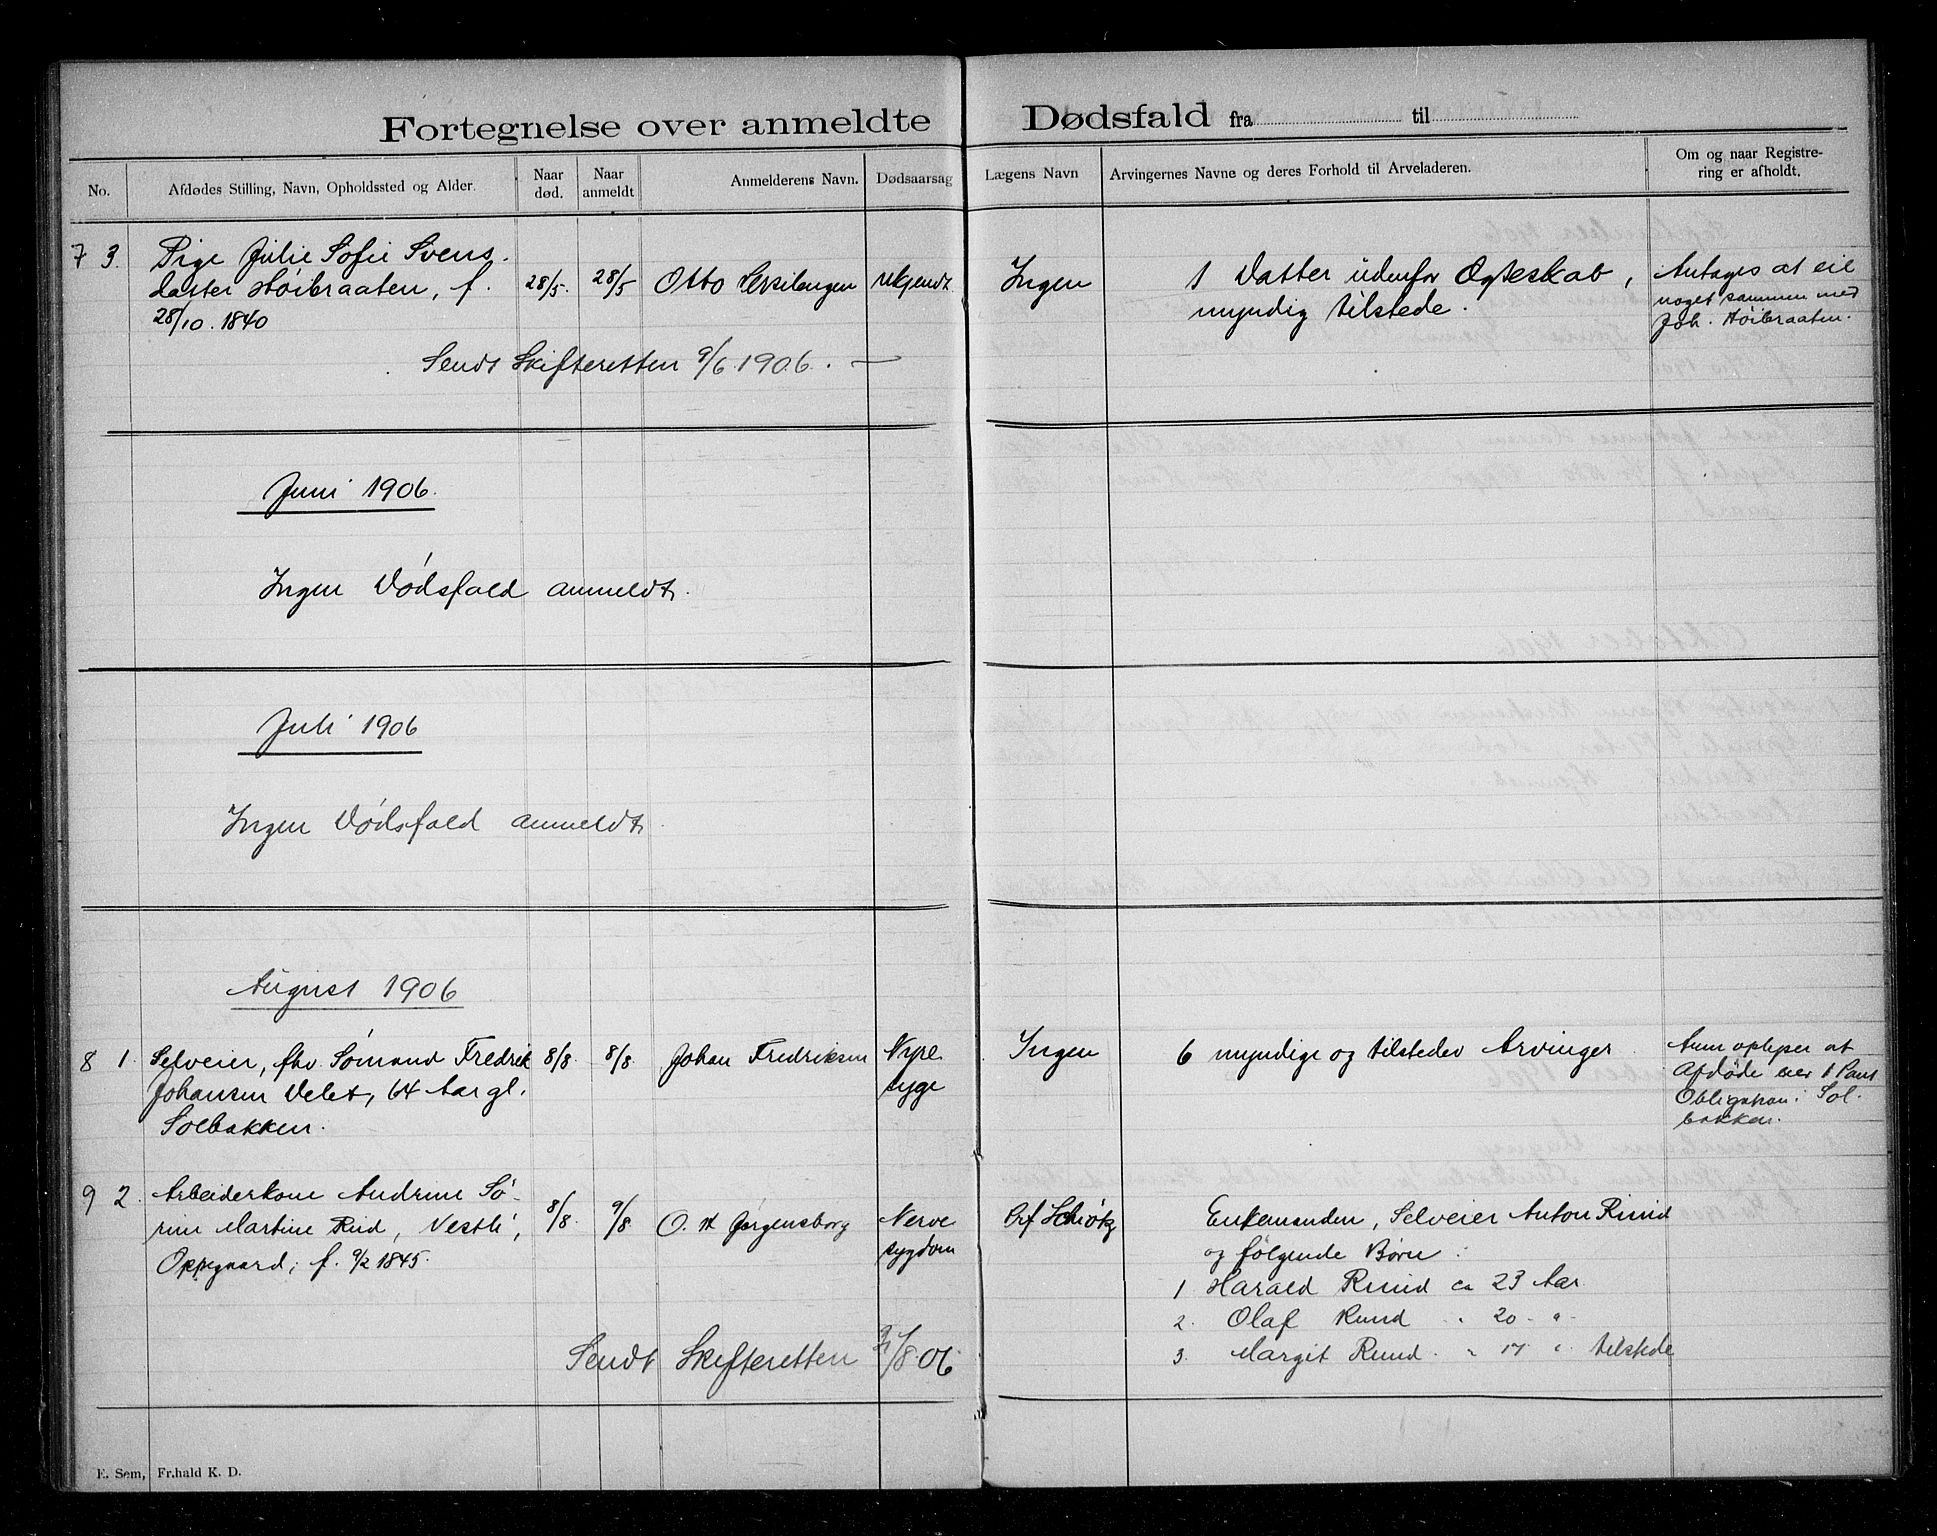 Fortegnelse over anmeldte Dødsfald fra til
No.
Afdødes Stilling, Navn, Opholdssted og Alder.
Naar død.
Naar anmeldt
Anmelderens Navn.
Dødsaarsag
Lægens Navn
Arvingernes Navne og deres Forhold til Arveladeren.
Om og naar Registre-
ring er afholdt.
7 3. Pige Julie Sofie Svens-
datter Høibraaten, f.
28/10. 1840
28/5.
28/5
Otto
ukjendt
Ingen
1 Datter udenfor Ægteskab,
myndig tilstede.
Antages at eie
noget sammen med
Joh. Høibraaten.
Sendt Skifteretten 9/6 1906. —
Juni 1906.
Ingen Dødsfald anmeldt.
Juli 1906
Ingen Dødsfald anmeldt.
August 1906
8 1. Selveier, fhv. Sømand Fredrik
Johansen Velet, 64 Aar gl.
Solbakken.
8/8.
8/8.
Johan Fredriksen
Nyre
syge
Ingen
6 myndige og tilstedev Arvinger
Anm oplyser at
Afdøde eier 1 Pant
Obligation i Sol-
bakken.
9 2. Arbeiderkone Andrine Sø-
rine Martine Rud, Vestli,
Oppegaard, f. 9/2 1845.
8/8.
9/8
O. H Jørgensborg
Nerve
sygdom
Prf Schiøtz
Enkemanden, Selveier Anton Ruud
og følgende Børn:
1 Harald Ruud ca 23 Aar
2. Olaf Ruud " 20 "
3. Margit Ruud " 17 " tilstede
Sendt Skifteretten /8.06
E. Sem, Fr.hald K. D.